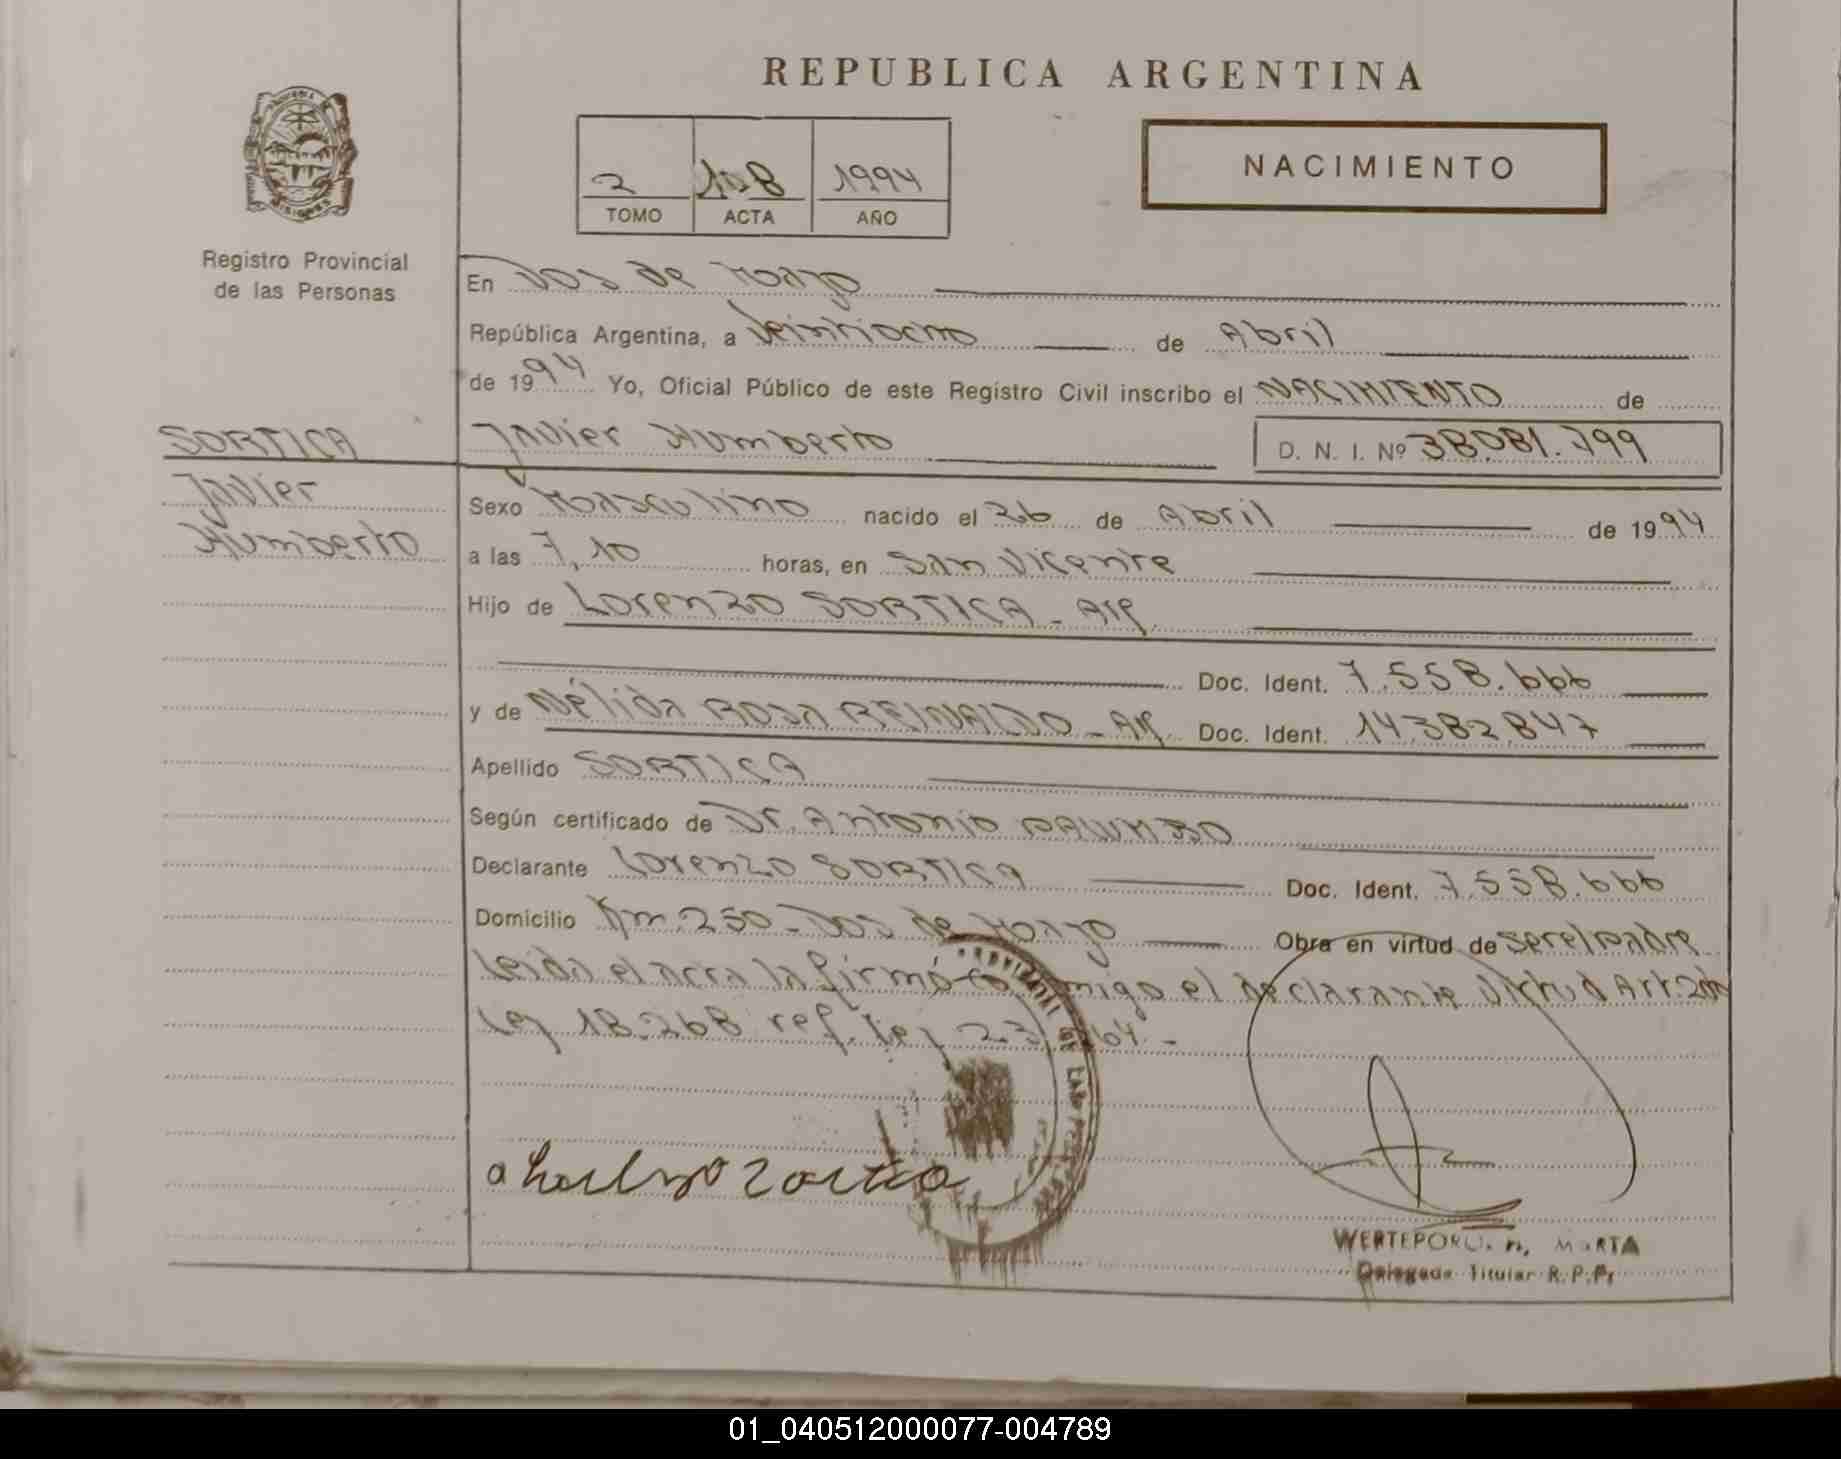 REPUBLICA ARGENTINA
2 108 1994
TOMO ACTA AÑO
NACIMIENTO
Registro Provincial
de las Personas
En Dos de Mayo
República Argentina, a Veintiocho de Abril
de 1994 Yo, Oficial Público de este Registro Civil inscribo el NACIMIENTO de
SORTICA
Javier
Humberto
Javier Humberto D. N. I. Nº 38.081.799
Sexo Masculino nacido el 26 de Abril de 1994
a las 7,10 horas, en San Vicente
Hijo de Lorenzo SORTICA - Arg.
Doc. Ident. 7.558.666
y de Nélida Rosa REINALDO - Arg. Doc. Ident. 14.382.847
Apellido SORTICA
Según certificado de Dr. Antonio
Declarante Lorenzo SORTICA Doc. Ident. 7.558.666
Domicilio Km. 250 - Dos de Mayo Obra en virtud de ser el padre
Leida el acta la firmó conmigo el declarante
Ley 18.268 ref. Ley 23
MARTA
Delegada Titular R.P.P.
01_040512000077-004789